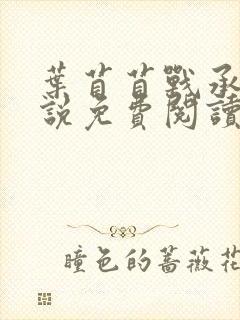 葉苜苜戰承
說免費閱讀
瞳色的薔薇花